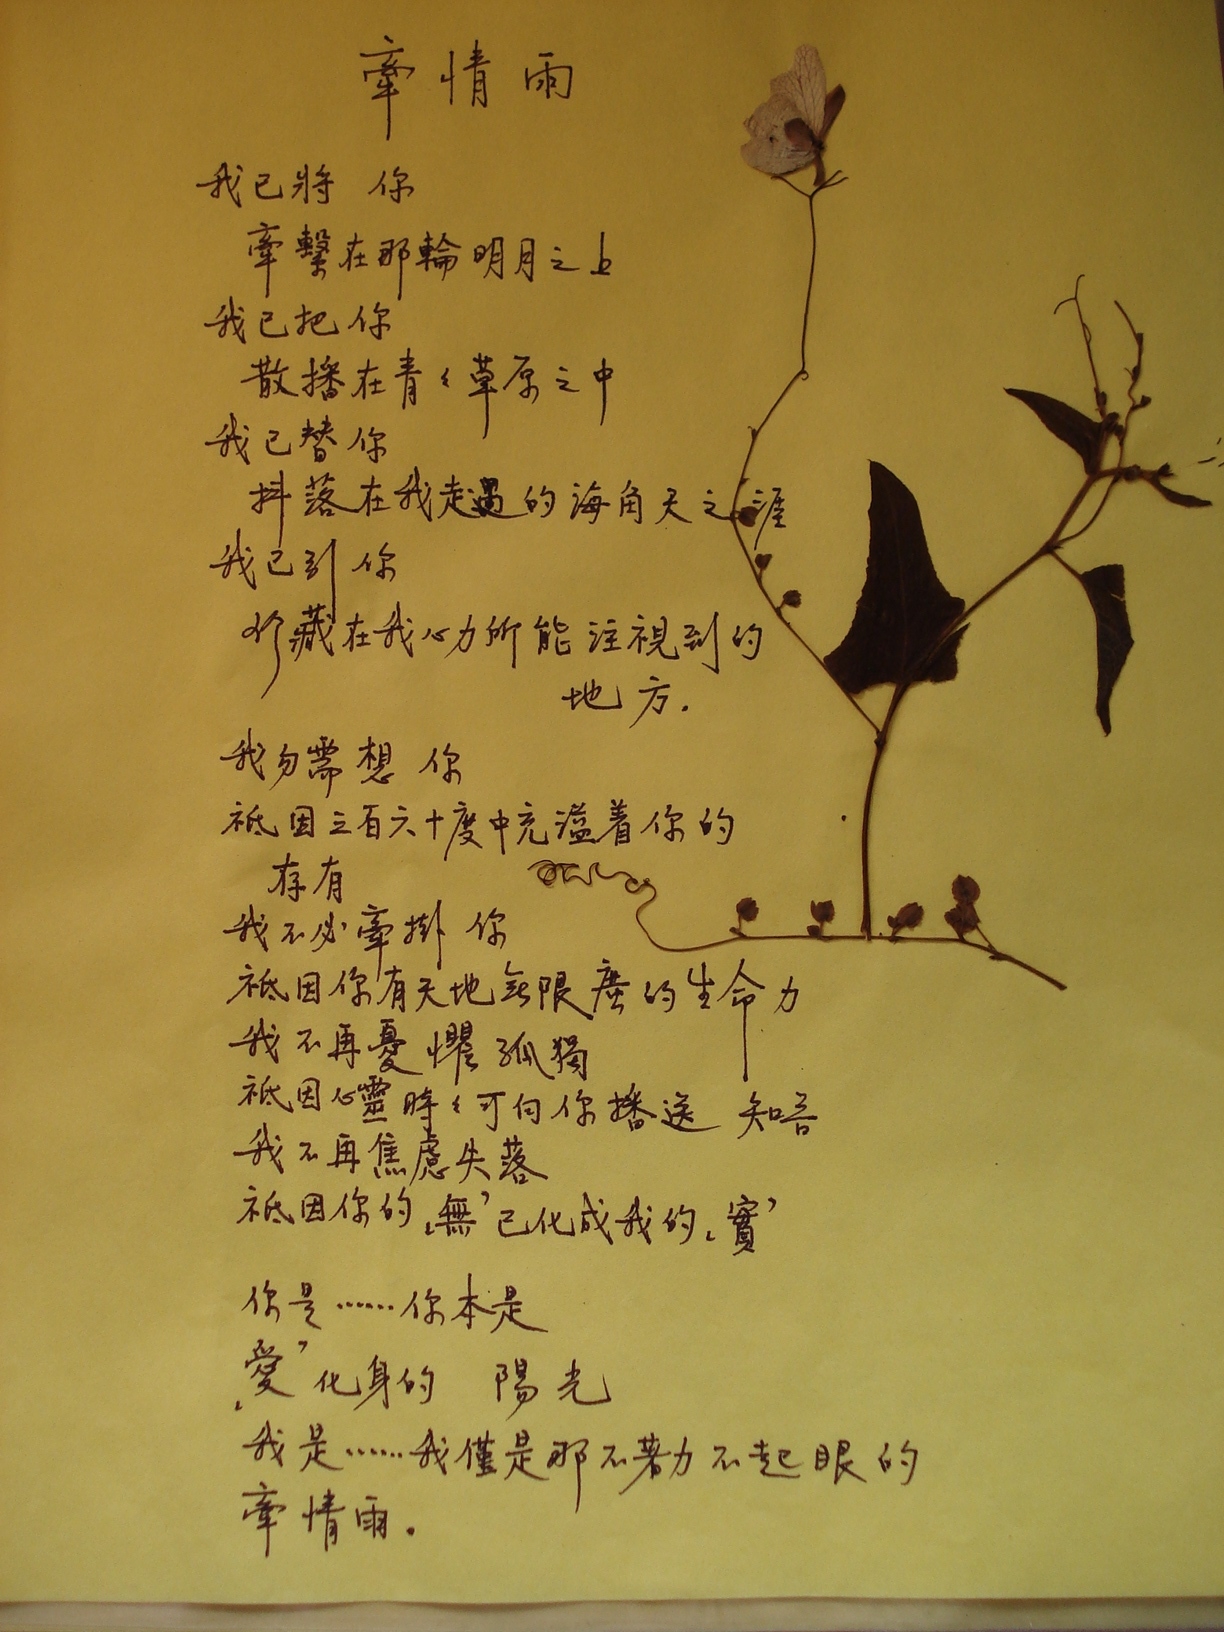 牽情雨
我已將 你
牽繫在那輪明月之上
我已把你
散播在青々草原之中
我已替你
抖落在我走過的海角天之涯
我已到你
珍藏在我心力所能注視到的
地方.
我勿需想 你
祗因三百六十度中充溢着你的
存有
我不必牽掛 你
祗因你有天地無限廣的生命力
我不再憂懼孤獨
祗因心靈時々可向你播送 知音
我不再焦慮失落
祗因你的‘無’已化成我的‘實’
你是……你本是
‘愛’化身的 陽光
我是……我僅是那不著力不起眼的
牽情雨.